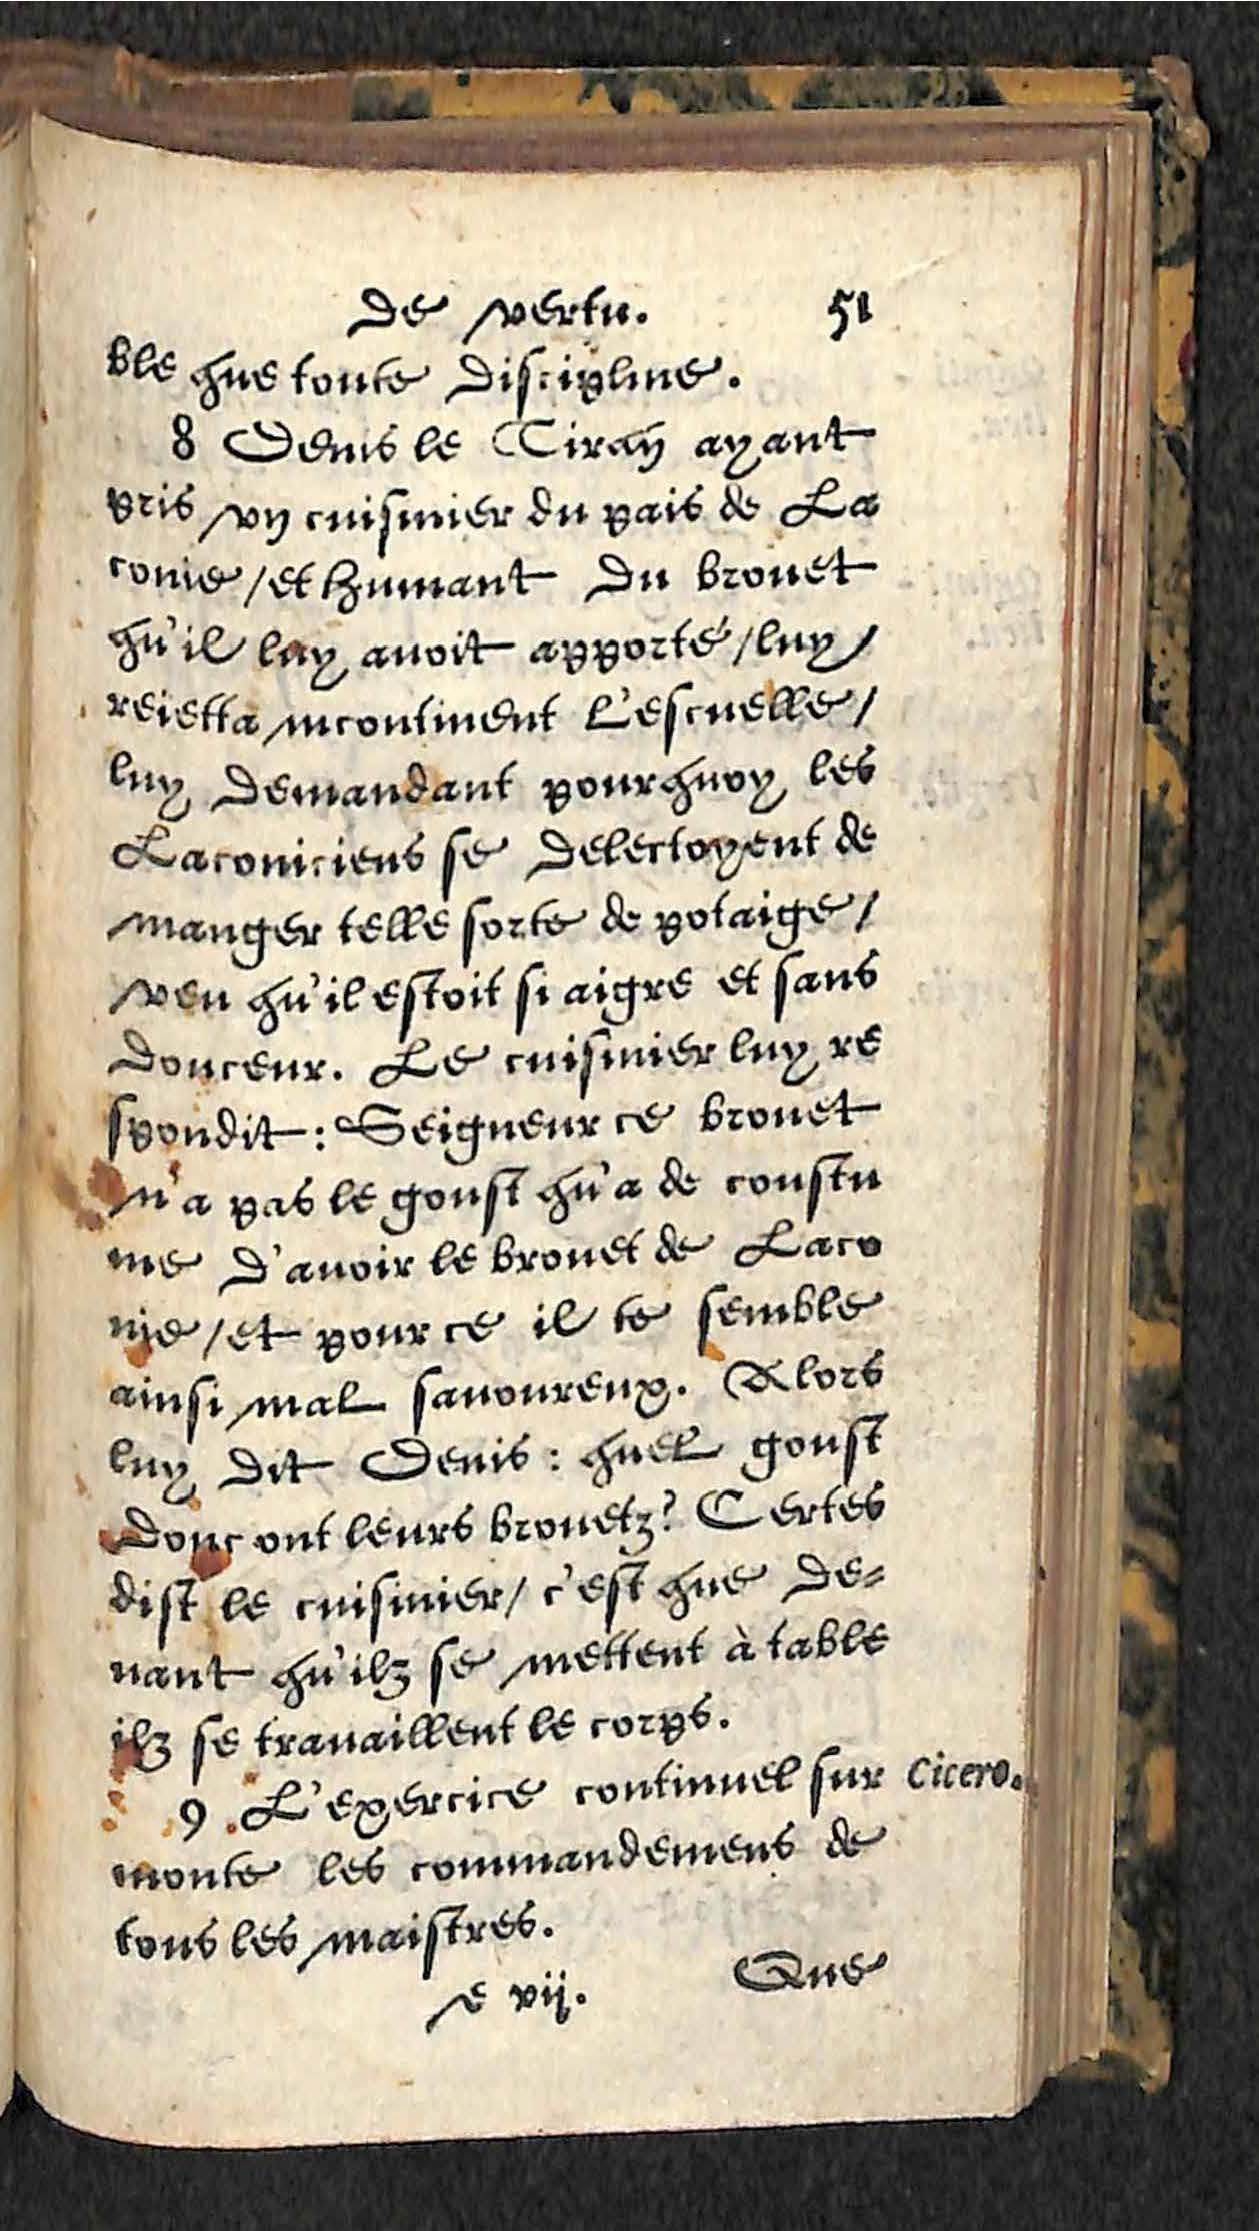 de vertu. 51
ble que toute discipline.
8 Denis le Tiran ayant
pris vn cuisinier du païs de La
conie / et humant du brouet
qu'il luy auoit apporté / luy /
reietta incontinent l'escuelle /
luy demandant pourquoy les
Laconiciens se delectoyent de
manger telle sorte de potaige /
veu qu'il estoit si aigre et sans
douceur. Le cuisinier luy re
spondit : Seigneur ce brouet
n'a pas le goust qu'a de coustu
me d'auoir le brouet de Laco
nie / et pource il te semble
ainsi mal sauoureux. Alors
luy dit Denis : quel goust
donc ont leurs brouetz? Certes
dist le cuisinier / c'est que de-
uant qu'ilz se mettent à table
ilz se trauaillent le corps.
9 . L'exercice continuel sur Cicero.
monte les commandemens de
tous les maistres.
e vij. Que